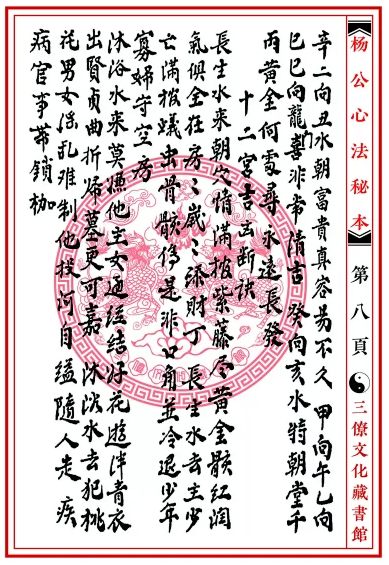 杨公心法秘本
第八頁
三僚文化藏書館
辛二向丑水朝富貴真容易不久 甲向午乙向
巳巳向龍門喜非常隋吉 癸向亥水特朝堂千
雨黃金何處尋永遠長發
十二宮吉凶断訣
長生水来朝文情满披紫藤尽黄金骸红润
氣俱全在房房歳歳添財丁 長生水去主少
亡满披蟻出骨骸傷是非口角並冷退少年
寡婦守空房
沐浴水来莫嫌他主女通經结好花遊泮青衣
出賢貞曲折婦墓更可嘉 沐浴水去犯桃
花男女滛乱难制他投河自缢隨人走疾
病官事带鎖枷